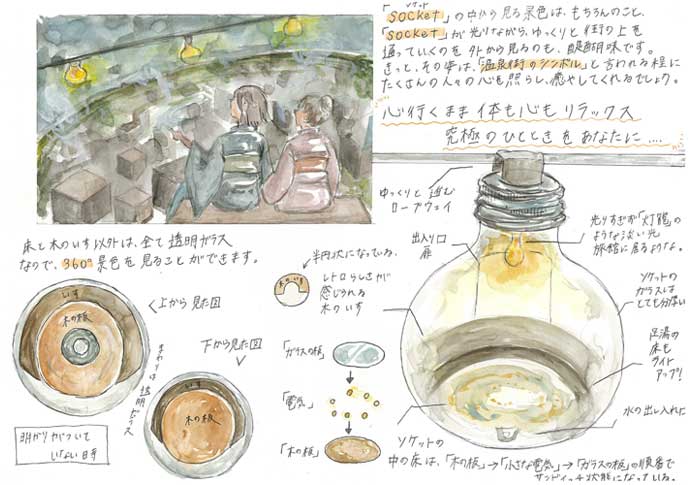 「socket」の中から見る景色は、もちろんのこと、
ソケット
「socket」が光りながら、ゆっくりと街の上を
通っていくのを外から見るのも、醍醐味です。
きっと、その姿は、「温泉街のシンボル」と言われる程に
たくさんの人々の心も照らし、癒やしてくれるでしょう。
心行くまま体も心もリラックス
究極のひとときをあなたに....
床と木のいす以外は、全て透明ガラス
なので、360°景色を見ることができます。
いす
木の板
上から見た図
まわりは透明ガラス
下から見た図
いす
木の板
明かりがついて
いない時
半円状になっている、
レトロらしさが
感じられる
木のいす
木のいす
「ガラスの板」
「電気」
「木の板」
ゆっくりと進む
ロープウェイ
出入り口
扉
光りすぎず「灯籠」の
ような淡い光
旅館に居るような。
ソケットの
ガラスは
とても
足湯の
床も
ライト
アップ!
水の出し入れ口
ソケットの
中の床は、「木の板」→「小さな電気」→「ガラスの板」の順番で
サンドイッチ状態になっている。